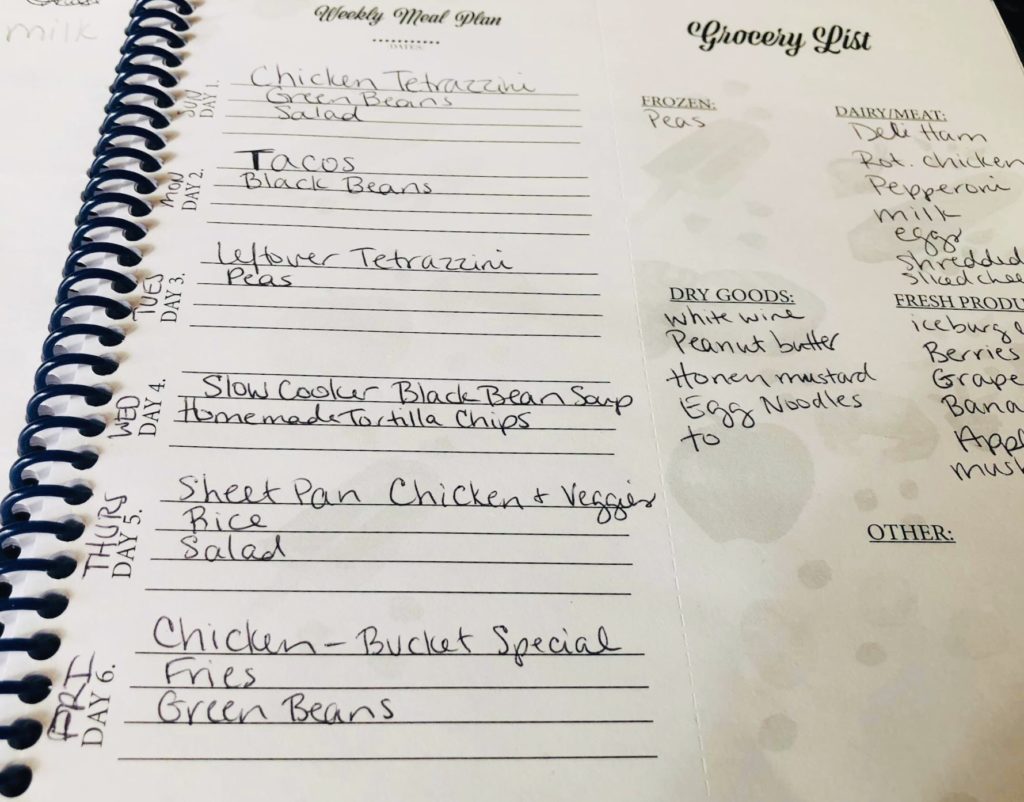 milk
Weekly Meal Plan
DATES:
SUN
DAY 1.
Chicken Tetrazzini
Green Beans
Salad
MON
DAY 2.
Tacos
Black Beans
TUES
DAY 3.
Leftover Tetrazzini
Peas
WED
DAY 4.
Slow Cooker Black Bean Soup
Homemade Tortilla Chips
THURS
DAY 5.
Sheet Pan Chicken + Veggies
Rice
Salad
FRI
DAY 6.
Chicken - Bucket Special
Fries
Green Beans
Grocery List
FROZEN:
Peas
DAIRY/MEAT:
Deli Ham
Rot. Chicken
Pepperoni
milk
eggs
Shredded
Sliced chee
DRY GOODS:
white wine
Peanut butter
Honey mustard
Egg Noodles
to
FRESH PRODU
iceburg
Berries
Grape
Bana
App
mush
OTHER: